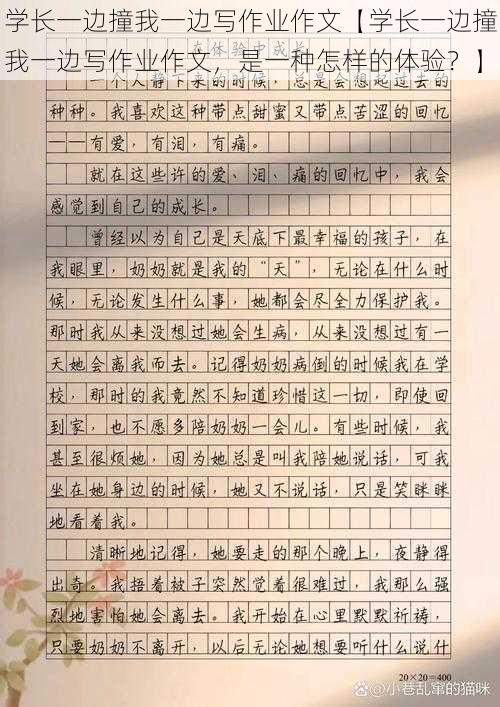 学长一边撞我一边写作业作文【学长一边撞
我一边写作业作文，是一种怎样的体验？】
在体验中成长
一个人静下来的时候，总是会想起过去的
种种。我喜欢这种带点甜蜜又带点苦涩的回忆
——有爱，有泪，有痛。
就在这些许的爱、泪、痛的回忆中，我会
感觉到自己的成长。
曾经以为自己是天底下最幸福的孩子，在
我眼里，奶奶就是我的“天”，无论在什么时
候，无论发生什么事，她都会尽全力保护我。
那时我从来没想过她会生病，从来没想过有一
天她会离我而去。记得奶奶病倒的时候我在学
校，那时的我竟然不知道珍惜这一切，即使回
到家，也不愿多陪奶奶一会儿。有些时候，我
甚至很烦她，因为她总是叫我陪她说话，可我
坐在她身边的时候，她又不说话，只是笑眯眯
地看着我。
清晰地记得，她要走的那个晚上，夜静得
出奇。我捂着被子突然觉着很难过，我那么强
烈地害怕她会离去。我开始在心里默默祈祷，
只要奶奶不离开，以后无论她想要听什么说什
20×20=400
小巷乱窜的猫咪